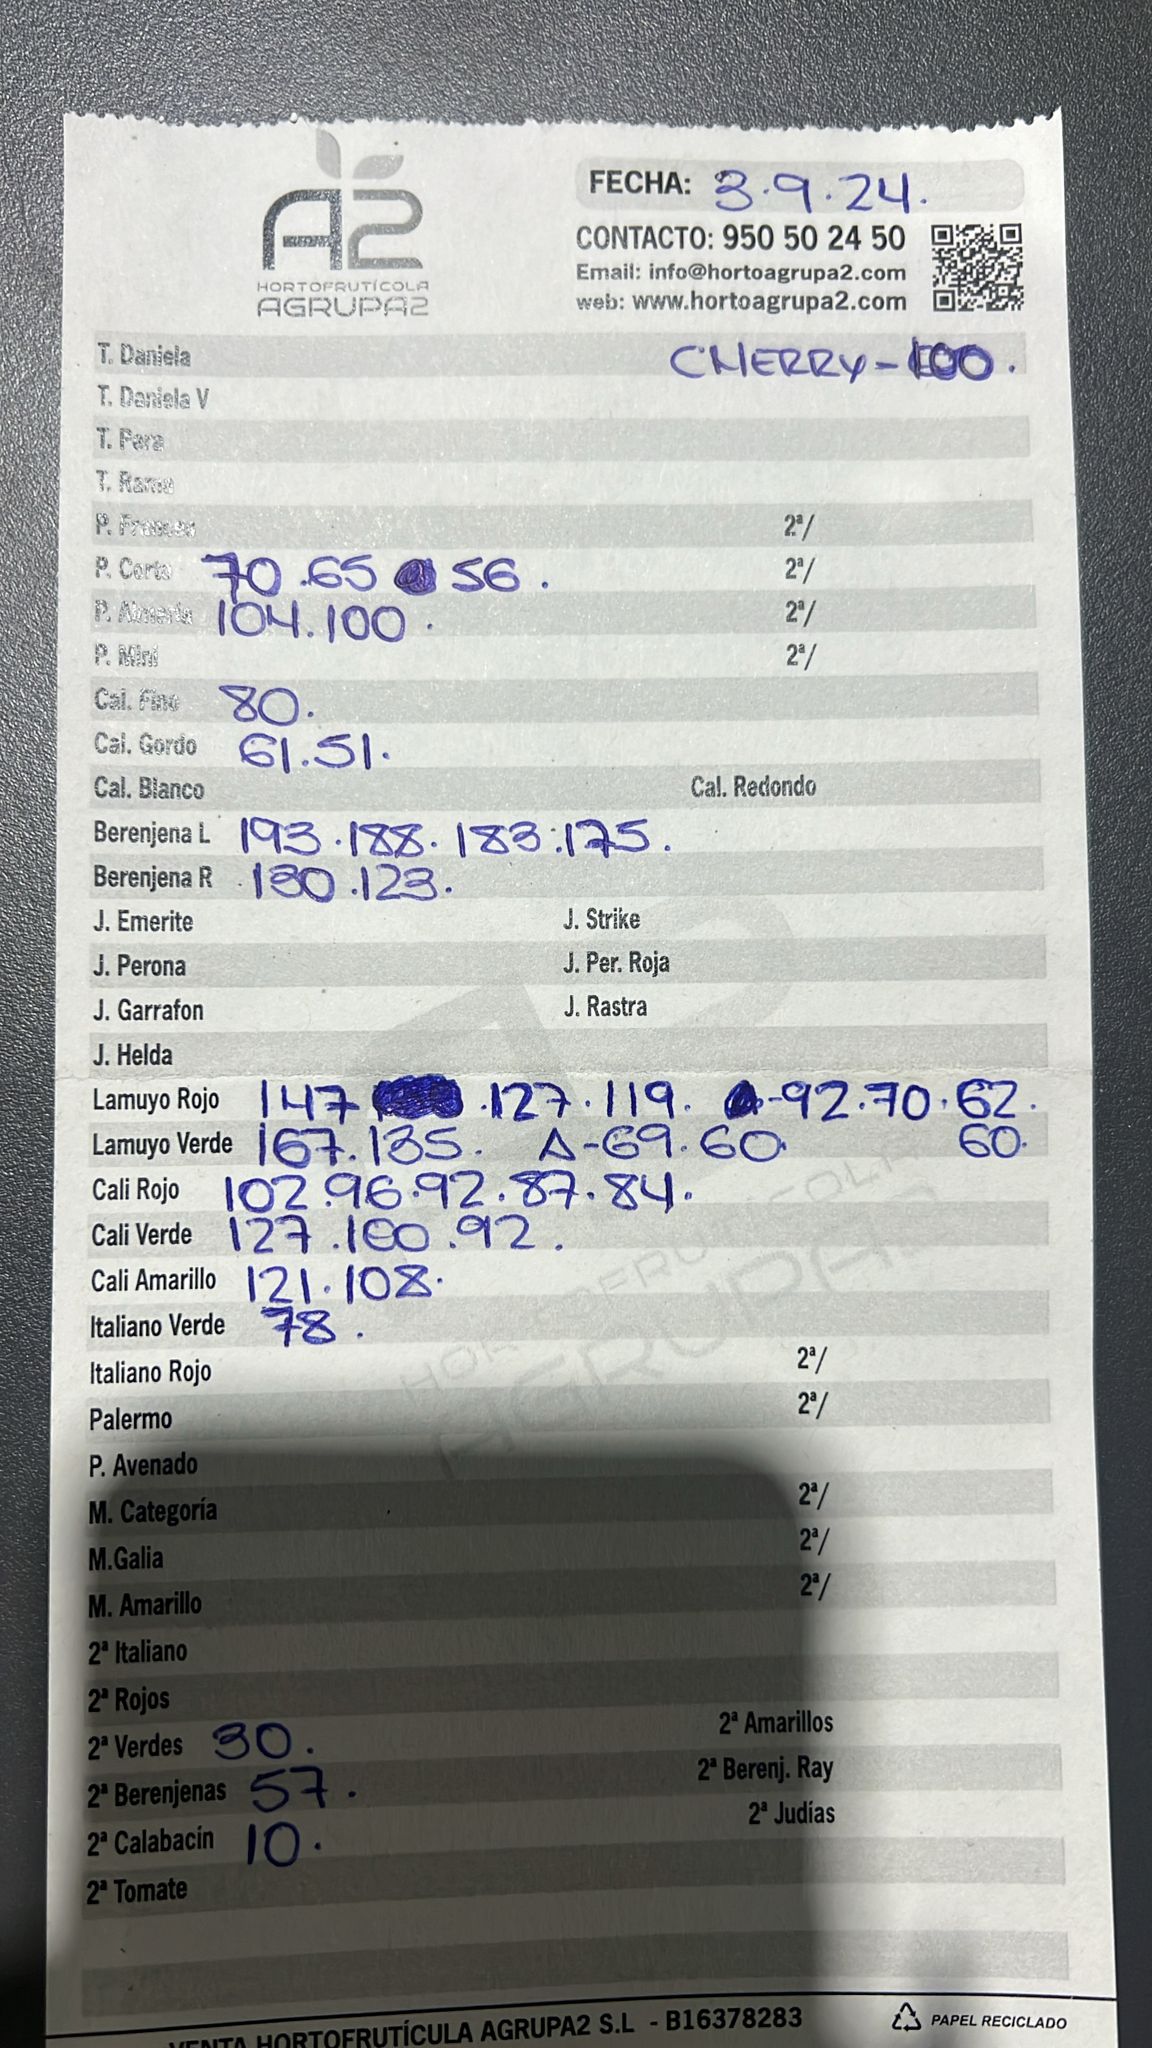 A2
HORTOFRUTÍCOLA
AGRUPA2
FECHA: 3.9.24.
CONTACTO: 950 50 24 50
Email: info@hortoagrupa2.com
web: www.hortoagrupa2.com
T. Daniela CHERRY-100.
T. Daniela V
T. Pera
T. Rama
P. Frances 2ª/
P. Corto 70.65 56. 2ª/
P. Almería 104.100. 2ª/
P. Mini 2ª/
Cal. Fino 80.
Cal. Gordo 61.51.
Cal. Blanco Cal. Redondo
Berenjena L 193.188.183.175.
Berenjena R 130.123.
J. Emerite J. Strike
J. Perona J. Per. Roja
J. Garrafon J. Rastra
J. Helda
Lamuyo Rojo 147 .127.119. -92.70.62.
Lamuyo Verde 167.135. A-69.60. 60.
Cali Rojo 102.96.92.87.84.
Cali Verde 127.100.92.
Cali Amarillo 121.108.
Italiano Verde 78.
Italiano Rojo 2ª/
Palermo 2ª/
P. Avenado
M. Categoría 2ª/
M.Galia 2ª/
M. Amarillo 2ª/
2ª Italiano
2ª Rojos
2ª Verdes 30. 2ª Amarillos
2ª Berenjenas 57. 2ª Berenj. Ray
2ª Calabacín 10. 2ª Judías
2ª Tomate
VENTA HORTOFRUTÍCULA AGRUPA2 S.L - B16378283 PAPEL RECICLADO